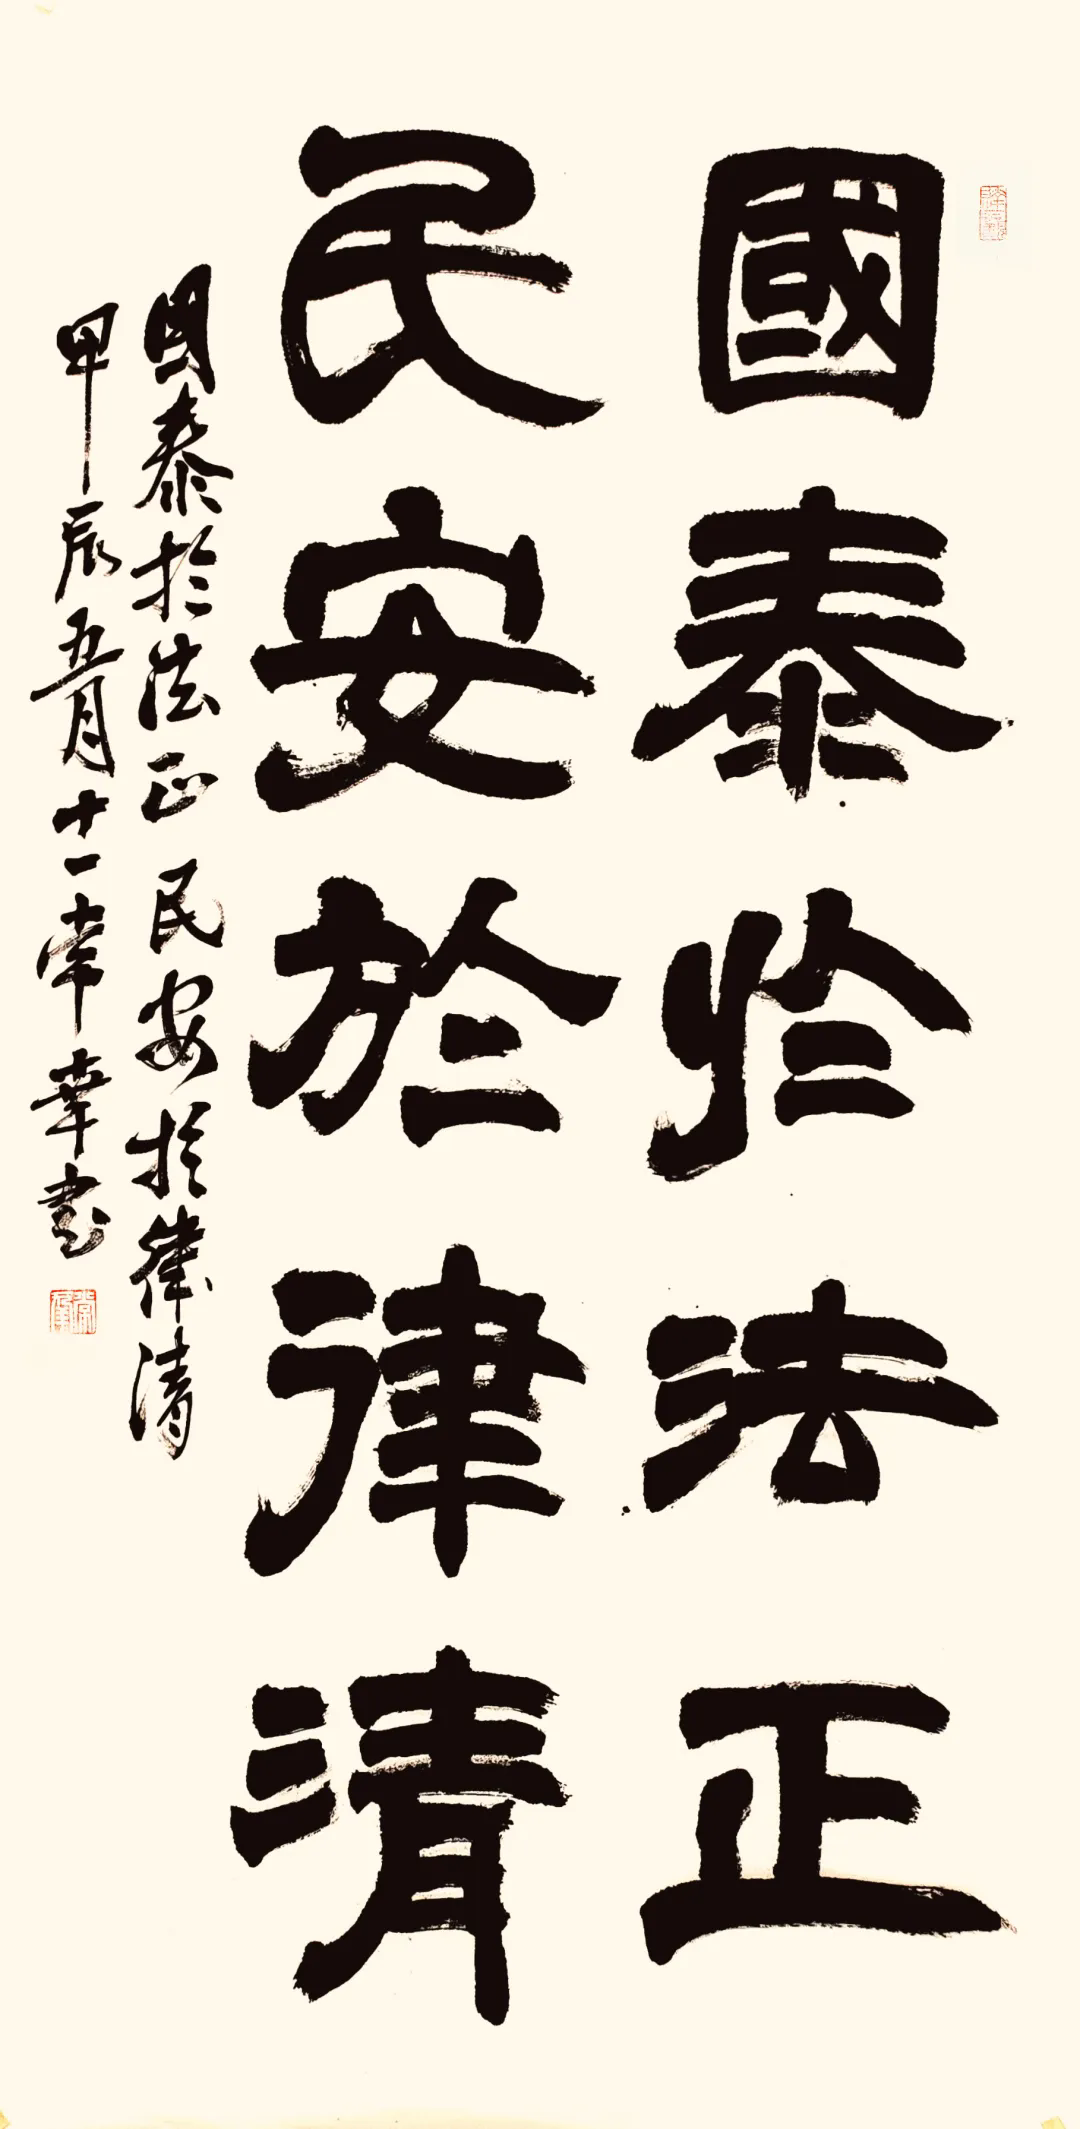 國泰於法正
民安於律清
国泰於法正 民安於律清
甲辰五月十一常葦书